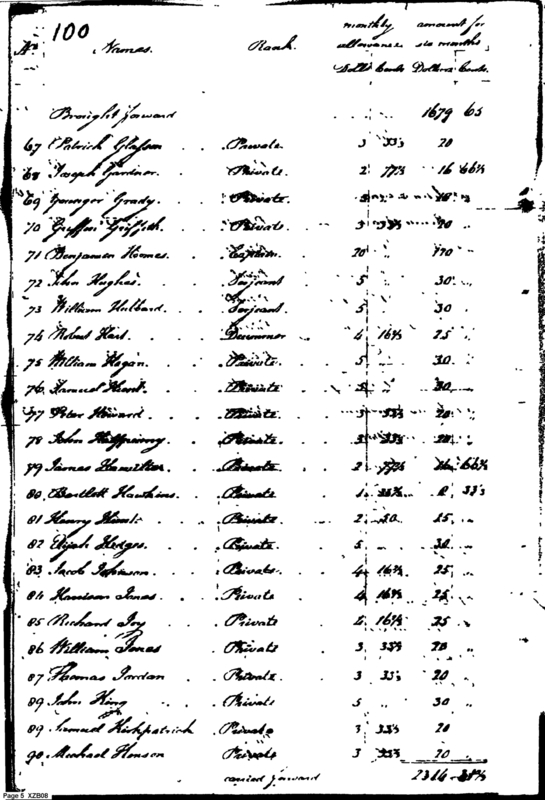 100
monthly amount for
No Names. Rank. allowance six months
Dolls Cents Dollars Cents.
Brought forward 1679 65
67 Patrick Private 3 33⅓ 20
68 Joseph Gardner Private 2 77⅔ 16 66⅔
69 Grady Private 5
70 Griffith Private 3 33⅓ 20
71 Benjamen Captain 20
72 John Hughes Serjeant 5 30
73 William Hubbard Serjeant 5 30
74 Robert Hart Drummer 4 16⅔ 25
75 William Hogan Private 5 30
76 Samuel Private 5 30
77 Peter Howard Private 3 33⅓ 20
78 John Halfpenny Private 3 33⅓ 20
79 James Hamilton Private 2 66⅔
80 Bartlett Hawkins Private 1 33⅓
81 Henry Private 2 50 15
82 Elijah Hedges Private 5 30
83 Jacob Johnson Private 4 16⅔ 25
84 Harrison Jones Private 4 16⅔ 25
85 Richard Joy Private 4 16⅔ 25
86 William Jones Private 3 33⅓ 20
87 Thomas Jordan Private 3 33⅓ 20
89 John King Private 5 30
89 Samuel Kirkpatrick Private 3 33⅓ 20
90 Michael Henson Private 3 33⅓ 20
carried forward 2314
Page 5 XZB08